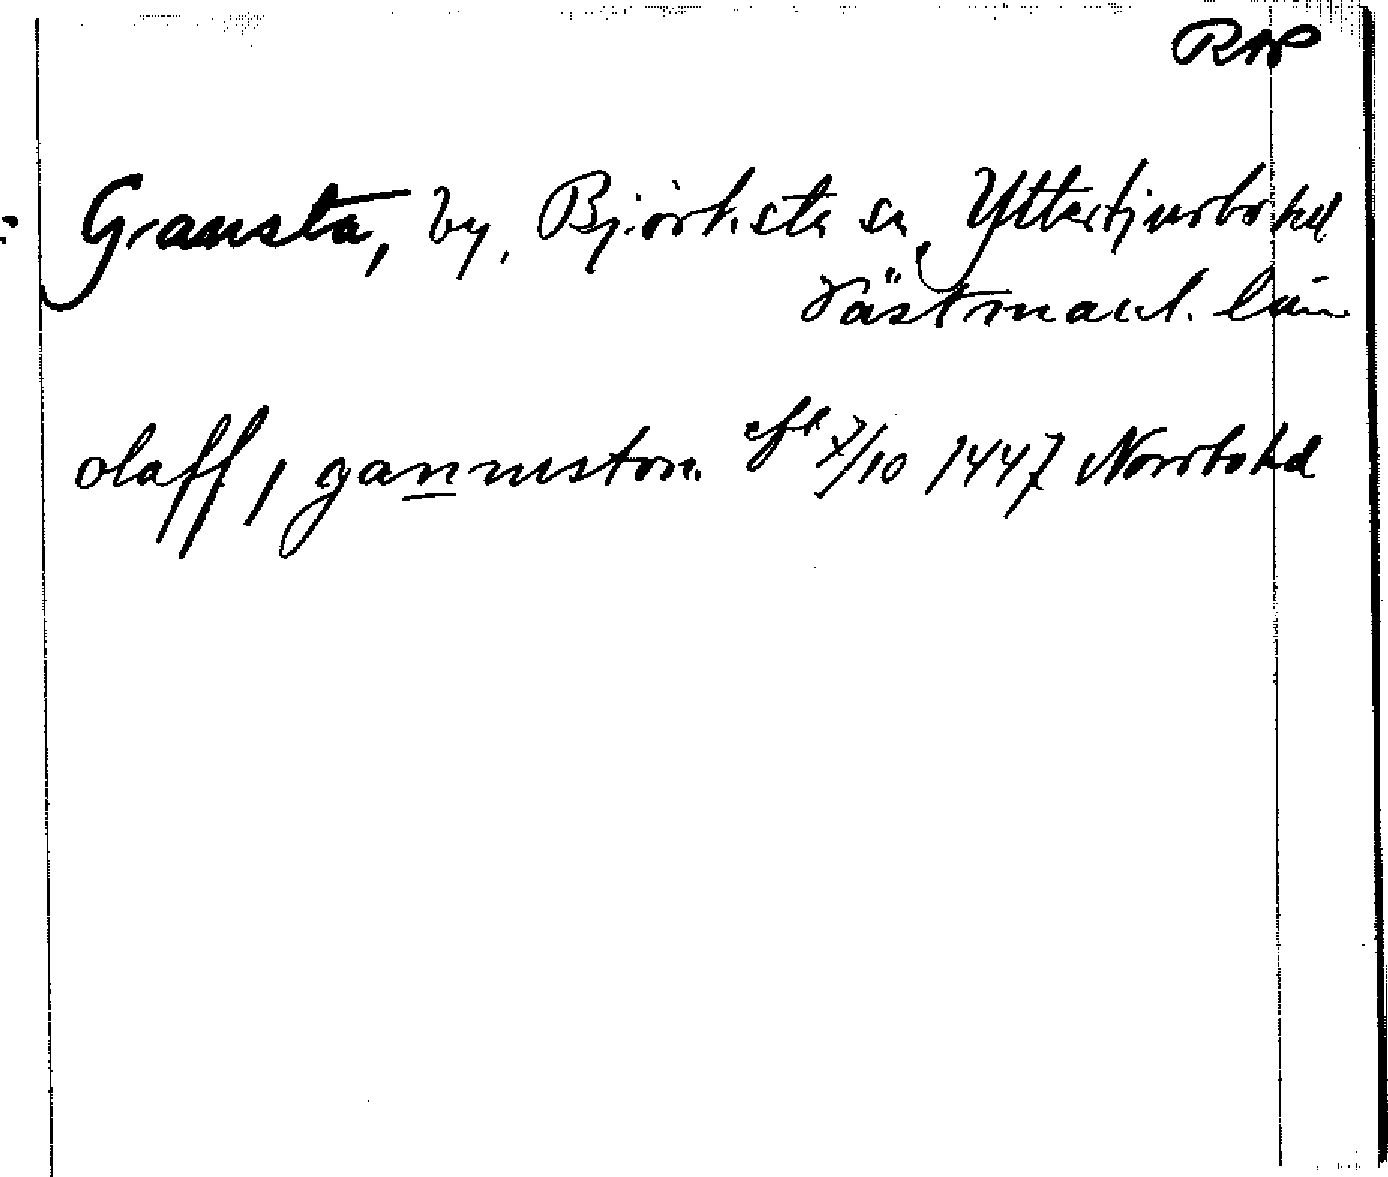 RAP
Gransta, by, Björksta sn, Yttertjurbo hd
Västmanl. län
olaff j gannnston. 7/10 1447 Norrbo hd